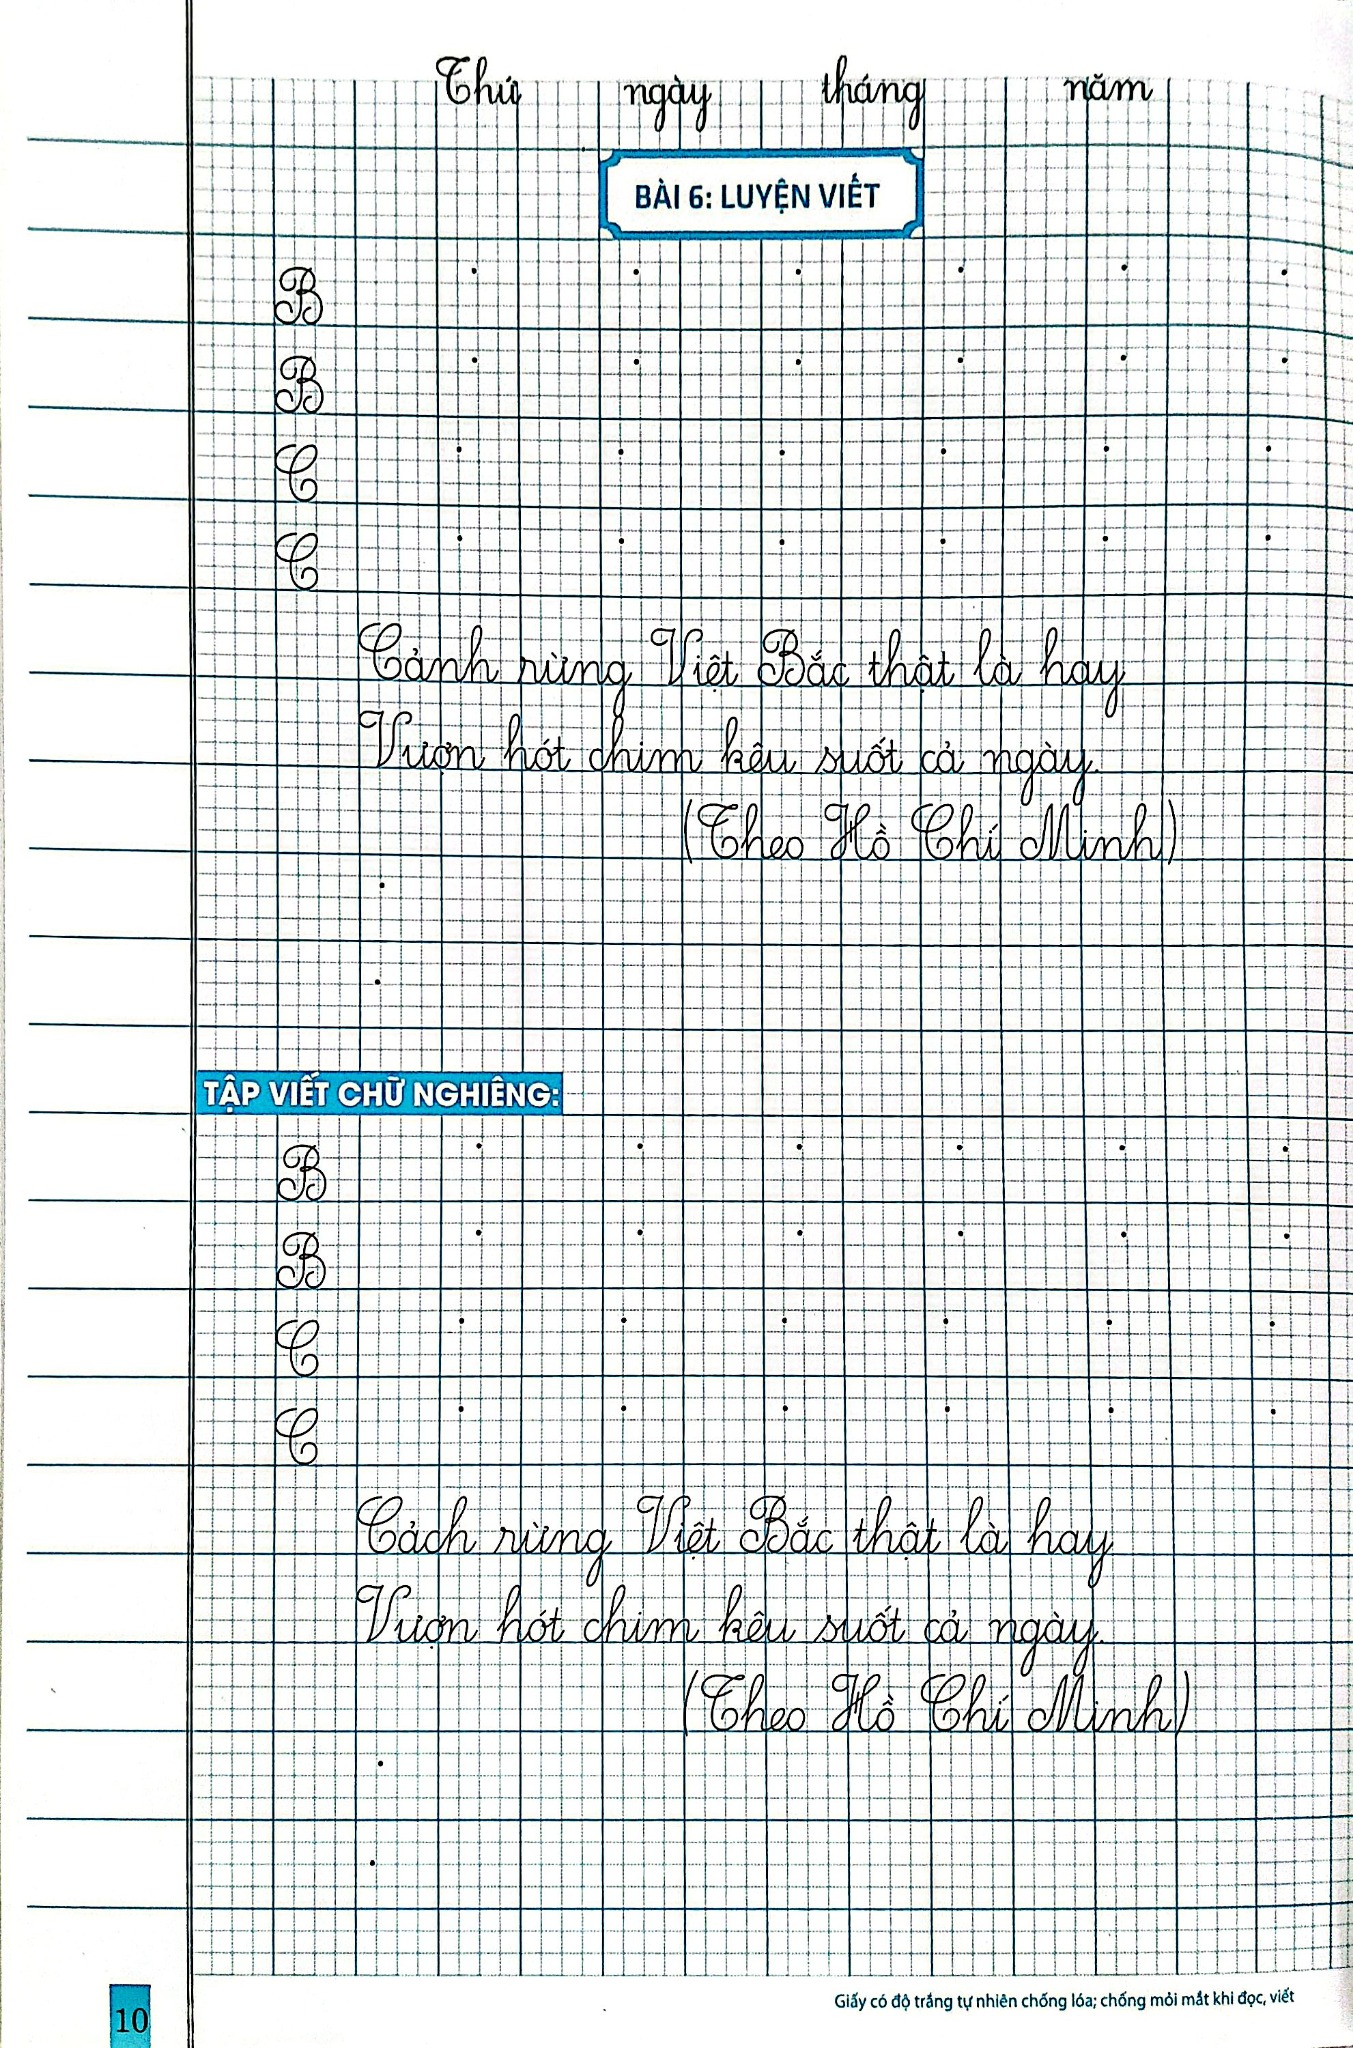 Thứ ngày tháng năm
BÀI 6: LUYỆN VIẾT
B
B
C
C
Cảnh rừng Việt Bắc thật là hay
Vượn hót chim kêu suốt cả ngày.
(Theo Hồ Chí Minh)
TẬP VIẾT CHỮ NGHIÊNG:
B
B
C
C
Cảch rừng Việt Bắc thật là hay
Vượn hót chim kêu suốt cả ngày.
(Theo Hồ Chí Minh)
10
Giấy có độ trắng tự nhiên chống lóa; chống mỏi mắt khi đọc, viết